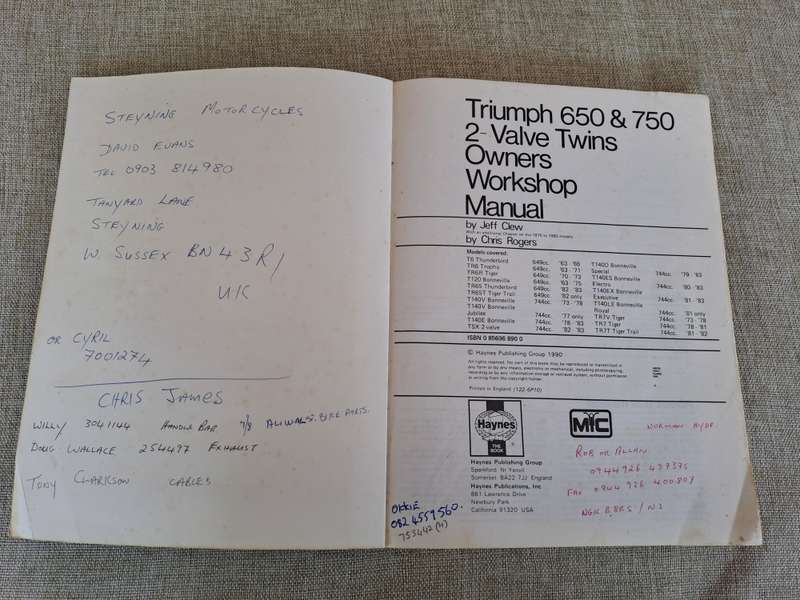 STEYNING MOTORCYCLES
DAVID EVANS
TEL 0903 814980
TANYARD LANE
STEYNING
W. SUSSEX BN43R/
UK
OR CYRIL
7001274
CHRIS JAMES
WILLY 3041144 HANDLE BAR 7/8 ALIWAL S. BIKE PARTS.
DOUG WALLACE 254497 EXHAUST
TONY CLARKSON CABLES
Triumph 650 & 750
2-Valve Twins
Owners
Workshop
Manual
by Jeff Clew
With an additional Chapter on the 1975 to 1983 models
by Chris Rogers
Models covered:
T6 Thunderbird 649cc. '63 - '66
TR6 Trophy 649cc. '63 - '71
TR6R Tiger 649cc. '70 - '73
T120 Bonneville 649cc. '63 - '75
TR65 Thunderbird 649cc. '82 - '83
TR65T Tiger Trail 649cc. '82 only
T140V Bonneville 744cc. '73 - '78
T140V Bonneville
Jubilee 744cc. '77 only
T140E Bonneville 744cc. '78 - '83
TSX 2 valve 744cc. '82 - '83
T140D Bonneville
Special 744cc. '79 - '83
T140ES Bonneville
Electro 744cc. '80 - '83
T140EX Bonneville
Executive 744cc. '81 - '83
T140LE Bonneville
Royal 744cc. '81 only
TR7V Tiger 744cc. '73 - '78
TR7 Tiger 744cc. '78 - '81
TR7T Tiger Trail 744cc. '81 - '82
ISBN 0 85696 890 0
© Haynes Publishing Group 1990
All rights reserved. No part of this book may be reproduced or transmitted in
any form or by any means, electronic or mechanical, including photocopying,
recording or by any information storage or retrieval system, without permission
in writing from the copyright holder.
Printed in England (122-6P10)
Haynes
THE
BOOK
Haynes Publishing Group
Sparkford Nr Yeovil
Somerset BA22 7JJ England
Haynes Publications, Inc
861 Lawrence Drive
Newbury Park
California 91320 USA
MC
NORMAN HYDE
ROB OR ALLAN
0944 926 497375
FAX 0944 926 400809
NGK B8RS / N3
OKKIE
082 4559560.
755442 (H)